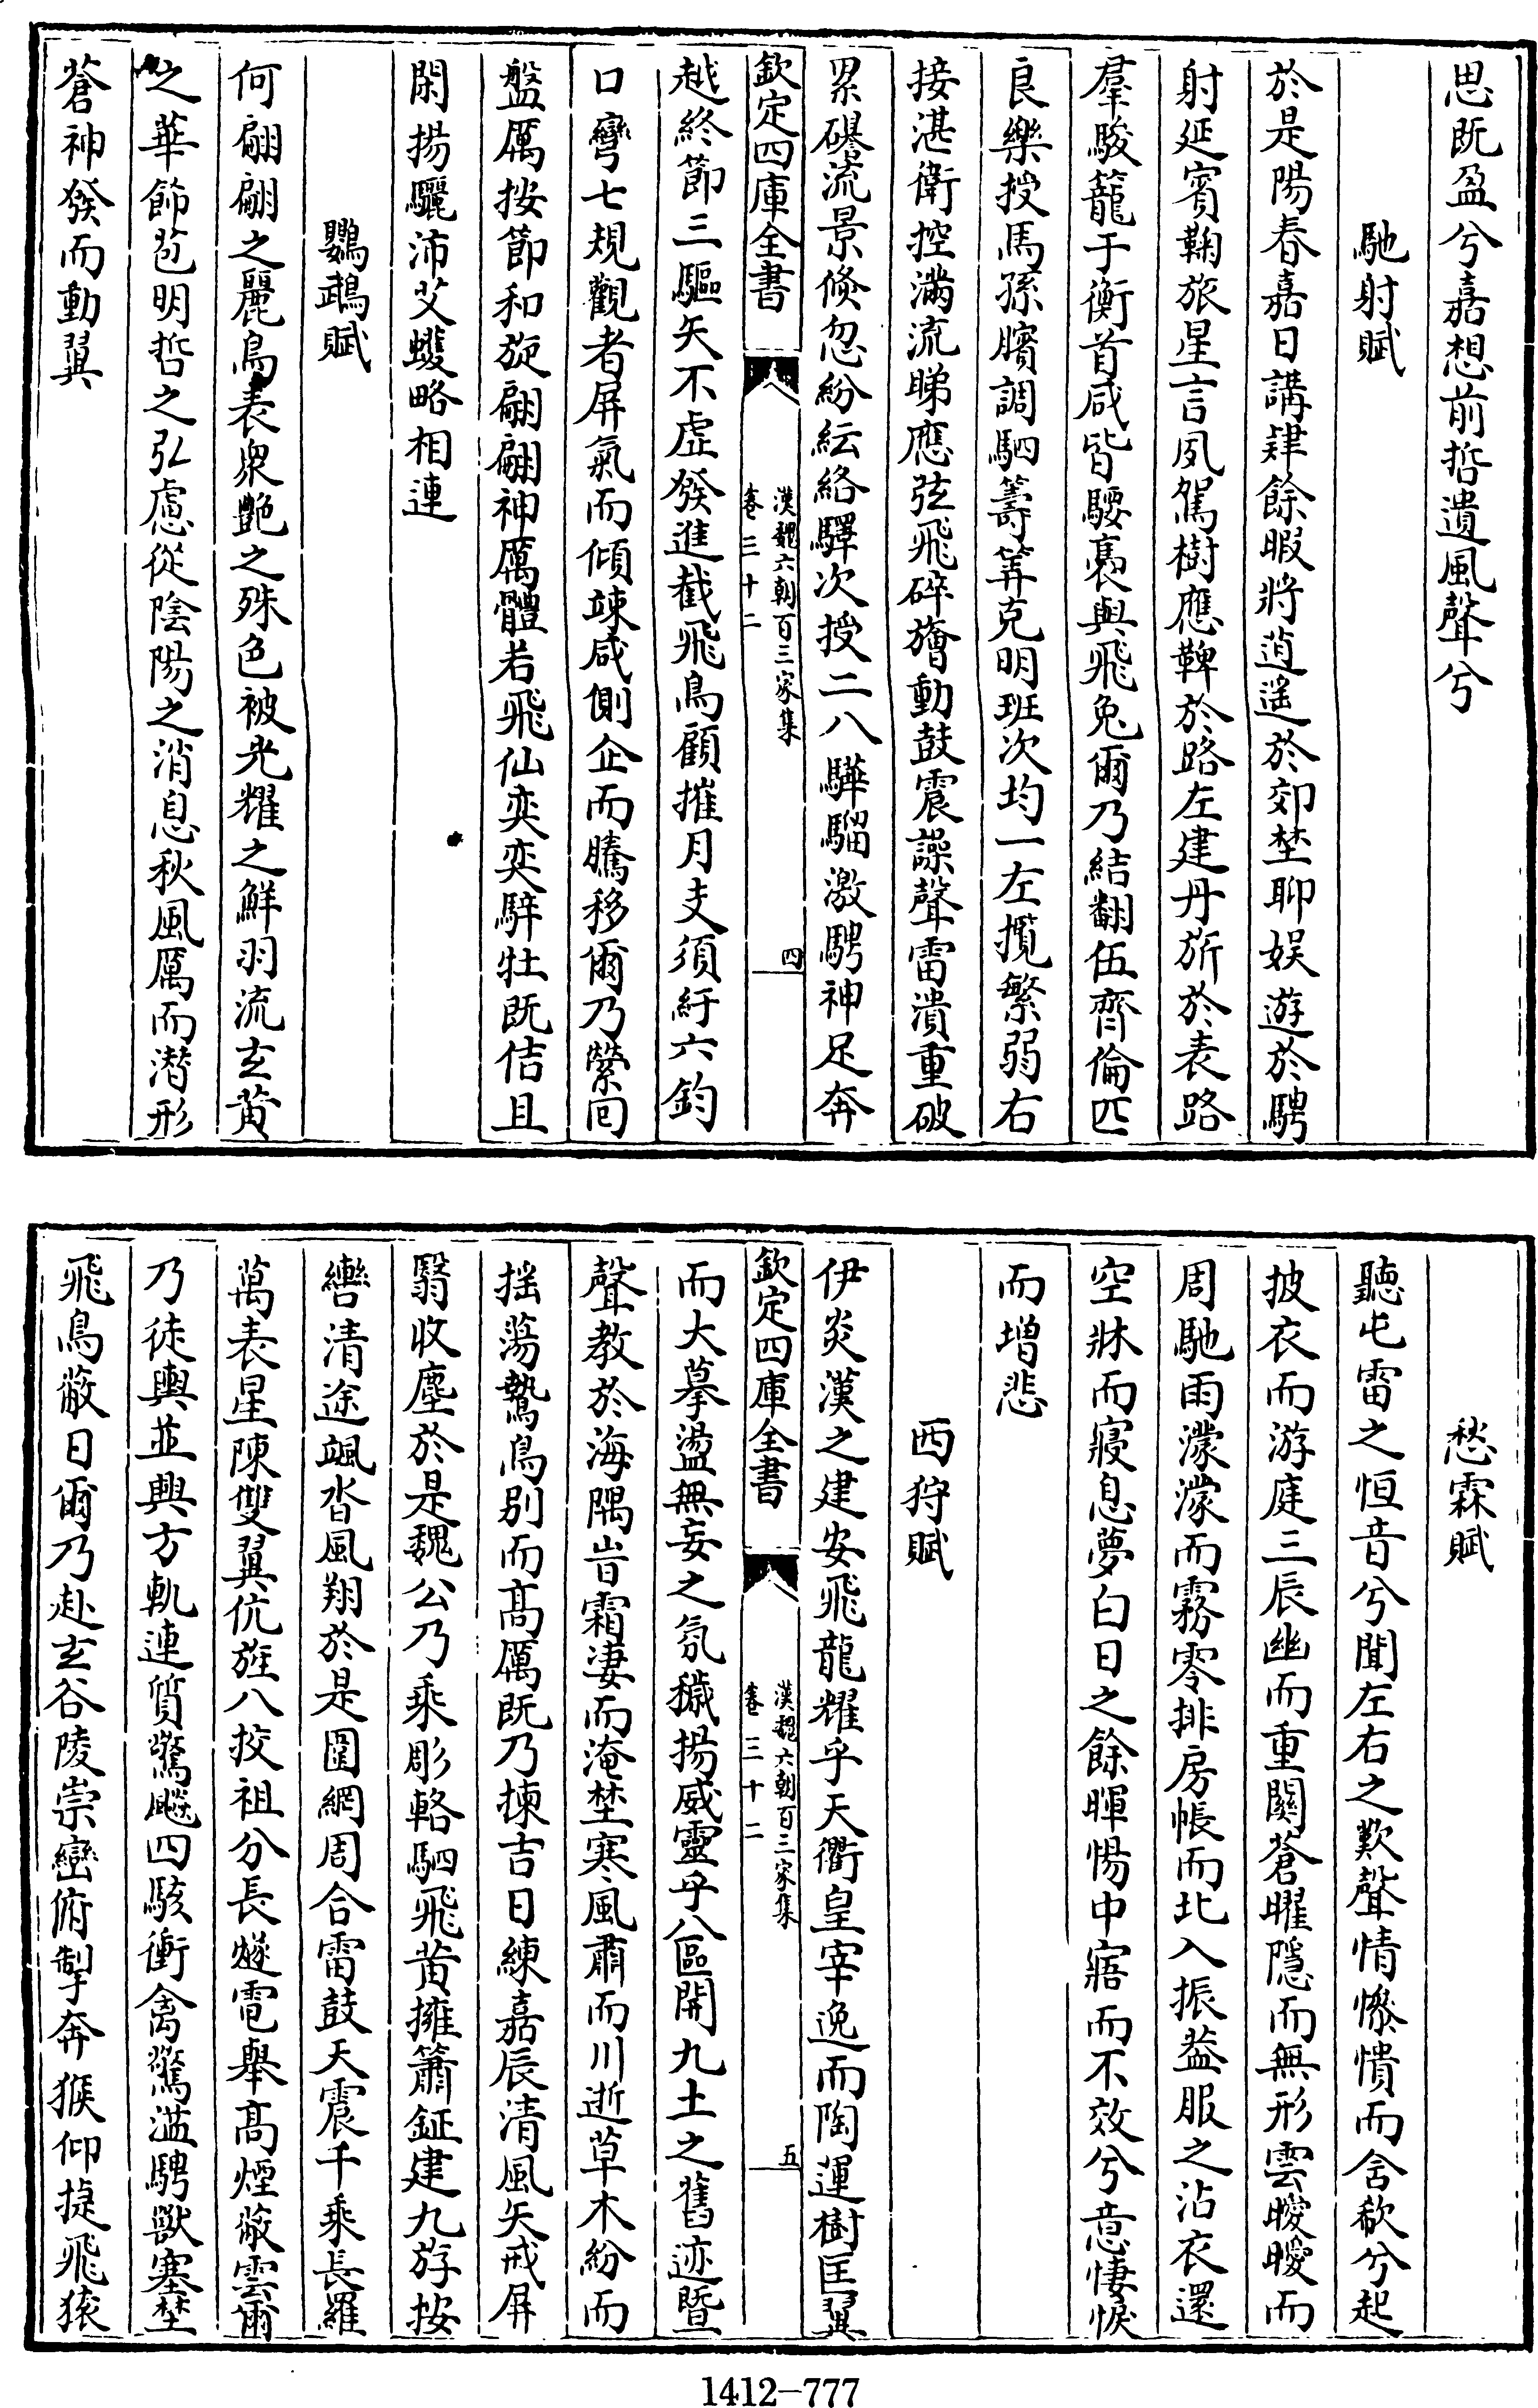 思既盈兮嘉想前哲遺風聲兮
馳射賦
於是陽春嘉日講肄餘暇將逍遥於郊埜聊娱遊於騁
射延賓鞠旅星言夙駕樹應鞞於路左建丹旂於表路
羣駿籠于衡首咸皆騕褭與飛兔爾乃結翻伍齊倫匹
良樂授馬孫臏調駟籌筭克明班次均一左攬繁弱右
接湛衛控滿流睇應弦飛碎旝動鼓震譟聲雷潰重破
累礔流景倐忽紛紜絡驛次授二八驊騮激騁神足奔
欽定四庫全書
漢魏六朝百三家集
卷三十二
四
越終節三驅矢不虛發進截飛鳥顧摧月支須紆六鈞
口彎七規觀者屏氣而傾竦咸側企而騰移爾乃縈回
盤厲按節和旋翩翩神厲體若飛仙奕奕騂牡既佶且
閑揚驪沛艾蠖略相連
鸚鵡賦
何翩翩之麗鳥表衆艷之殊色被光耀之鮮羽流玄黄
之華飾苞明哲之弘慮從陰陽之消息秋風厲而潛形
蒼神發而動翼
愁霖賦
聽屯雷之恒音兮聞左右之歎聲情慘憒而含欷兮起
披衣而游庭三辰幽而重關蒼曜隱而無形雲曖曖而
周馳雨濛濛而霧零排房帳而北入振葢服之沾衣還
空牀而寢息夢白日之餘暉惕中寤而不效兮意悽悷
而增悲
西狩賦
伊炎漢之建安飛龍耀乎天衢皇宰逸而陶運樹匡翼
欽定四庫全書
漢魏六朝百三家集
卷三十二
五
而大摹盪無妄之氛穢揚威靈乎八區開九土之舊迹暨
聲教於海隅旹霜淒而淹埜寒風肅而川逝草木紛而
揺蕩鷙鳥别而髙厲既乃揀吉日練嘉辰清風矢戒屏
翳收塵於是魏公乃乘彫輅駟飛黄擁簫鉦建九斿按
轡清途颯沓風翔於是圍網周合雷鼓天震千乘長羅
萬表星陳雙翼伉旌八挍祖分長燧電舉髙煙蔽雲爾
乃徒輿並興方軌連質驚飈四駭衝禽驚溢騁獸塞埜
飛鳥蔽日爾乃赴玄谷陵崇巒俯掣奔猴仰捷飛猿
1412-777